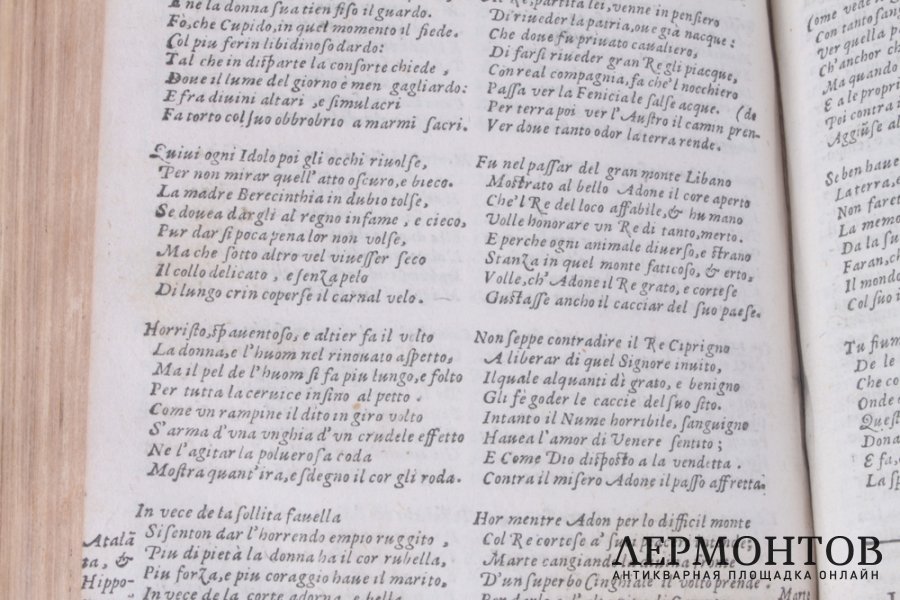 E ne la donna sua tien fiso il guardo.
Fò, che Cupido, in quel momento il fiede.
Col piu ferin libidinoso dardo:
Tal che in disparte la consorte chiede,
Doue il lume del giorno è men gagliardo:
E fra diuini altari, e simulacri
Fa torto col suo obbrobrio a marmi sacri.
Quiui ogni Idolo poi gli occhi riuolse,
Per non mirar quell'atto oscuro, e bieco.
La madre Berecinthia in dubio tolse,
Se douea dargli al regno infame, e cieco,
Pur dar si poca pena lor non volse,
Ma che sotto altro vel viuesser seco
Il collo delicato, e senza pelo
Di lungo crin coperse il carnal velo.
Horristo, spauentoso, e altier fa il volto
La donna, e l'huom nel rinouato aspetto,
Ma il pel de l'huom si fa piu lungo, e folto
Per tutta la ceruice insino al petto.
Come vn rampine il dito in giro volto
S'arma d'vna vnghia d'vn crudele effetto
Ne l'agitar la poluerosa coda
Mostra quant'ira, e sdegno il cor gli roda.
In vece de la sollita fauella
Si senton dar l'horrendo empio ruggito,
Piu di pietà la donna ha il cor rubella,
Piu forza, e piu coraggio haue il marito,
In vece de la corte adorna, e bella
Atalã
ta, &
Hippo-
Re, partita lei, venne in pensiero
Di riueder la patria, oue già nacque:
Che doue fu priuato caualiero,
Di farsi riueder gran Re gli piacque,
Con real compagnia, fa che'l nocchiero
Passa ver la Fenicia le salse acque. (de
Per terra poi ver l'Austro il camin pren-
Ver doue tanto odor la terra rende.
Fu nel passar del gran monte Libano
Mostrato al bello Adone il core aperto
Che'l Re del loco affabile, & humano
Volle honorare vn Re di tanto, merto.
E perche ogni animale diuerso, e strano
Stanza in quel monte faticoso, & erto,
Volle, ch'Adone il Re grato, e cortese
Gustasse ancho il cacciar del suo paese.
Non seppe contradire il Re Ciprigno
A liberar di quel Signore inuito,
Il quale alquanti dì grato, e benigno
Gli fè goder le caccie del suo sito.
Intanto il Nume horribile, sanguigno
Hauea l'amor di Venere sentito;
E Come Dio disposto a la vendetta.
Contra il misero Adone il passo affretta.
Hor mentre Adon per lo difficil monte
Col Re cortese a'
Marte cangiando
D'un superbo Cinghiale il volto prende
Marte
Come vede
Con tanto sang
Ver quella p
Ch'anchor ch
Ma quando
E a le propri
Poi contra i
Aggiuse al
Se ben haue
La terra, e
Non faret
La memo
Da la su
Faran, ch
Il mondo
Col suo i
Tu fium
De le
Che co
Onde
Quest
Dona
E fa, c
La sp
ЛЕРМОНТОВ
АНТИКВАРНАЯ ПЛОЩАДКА ОНЛАЙН